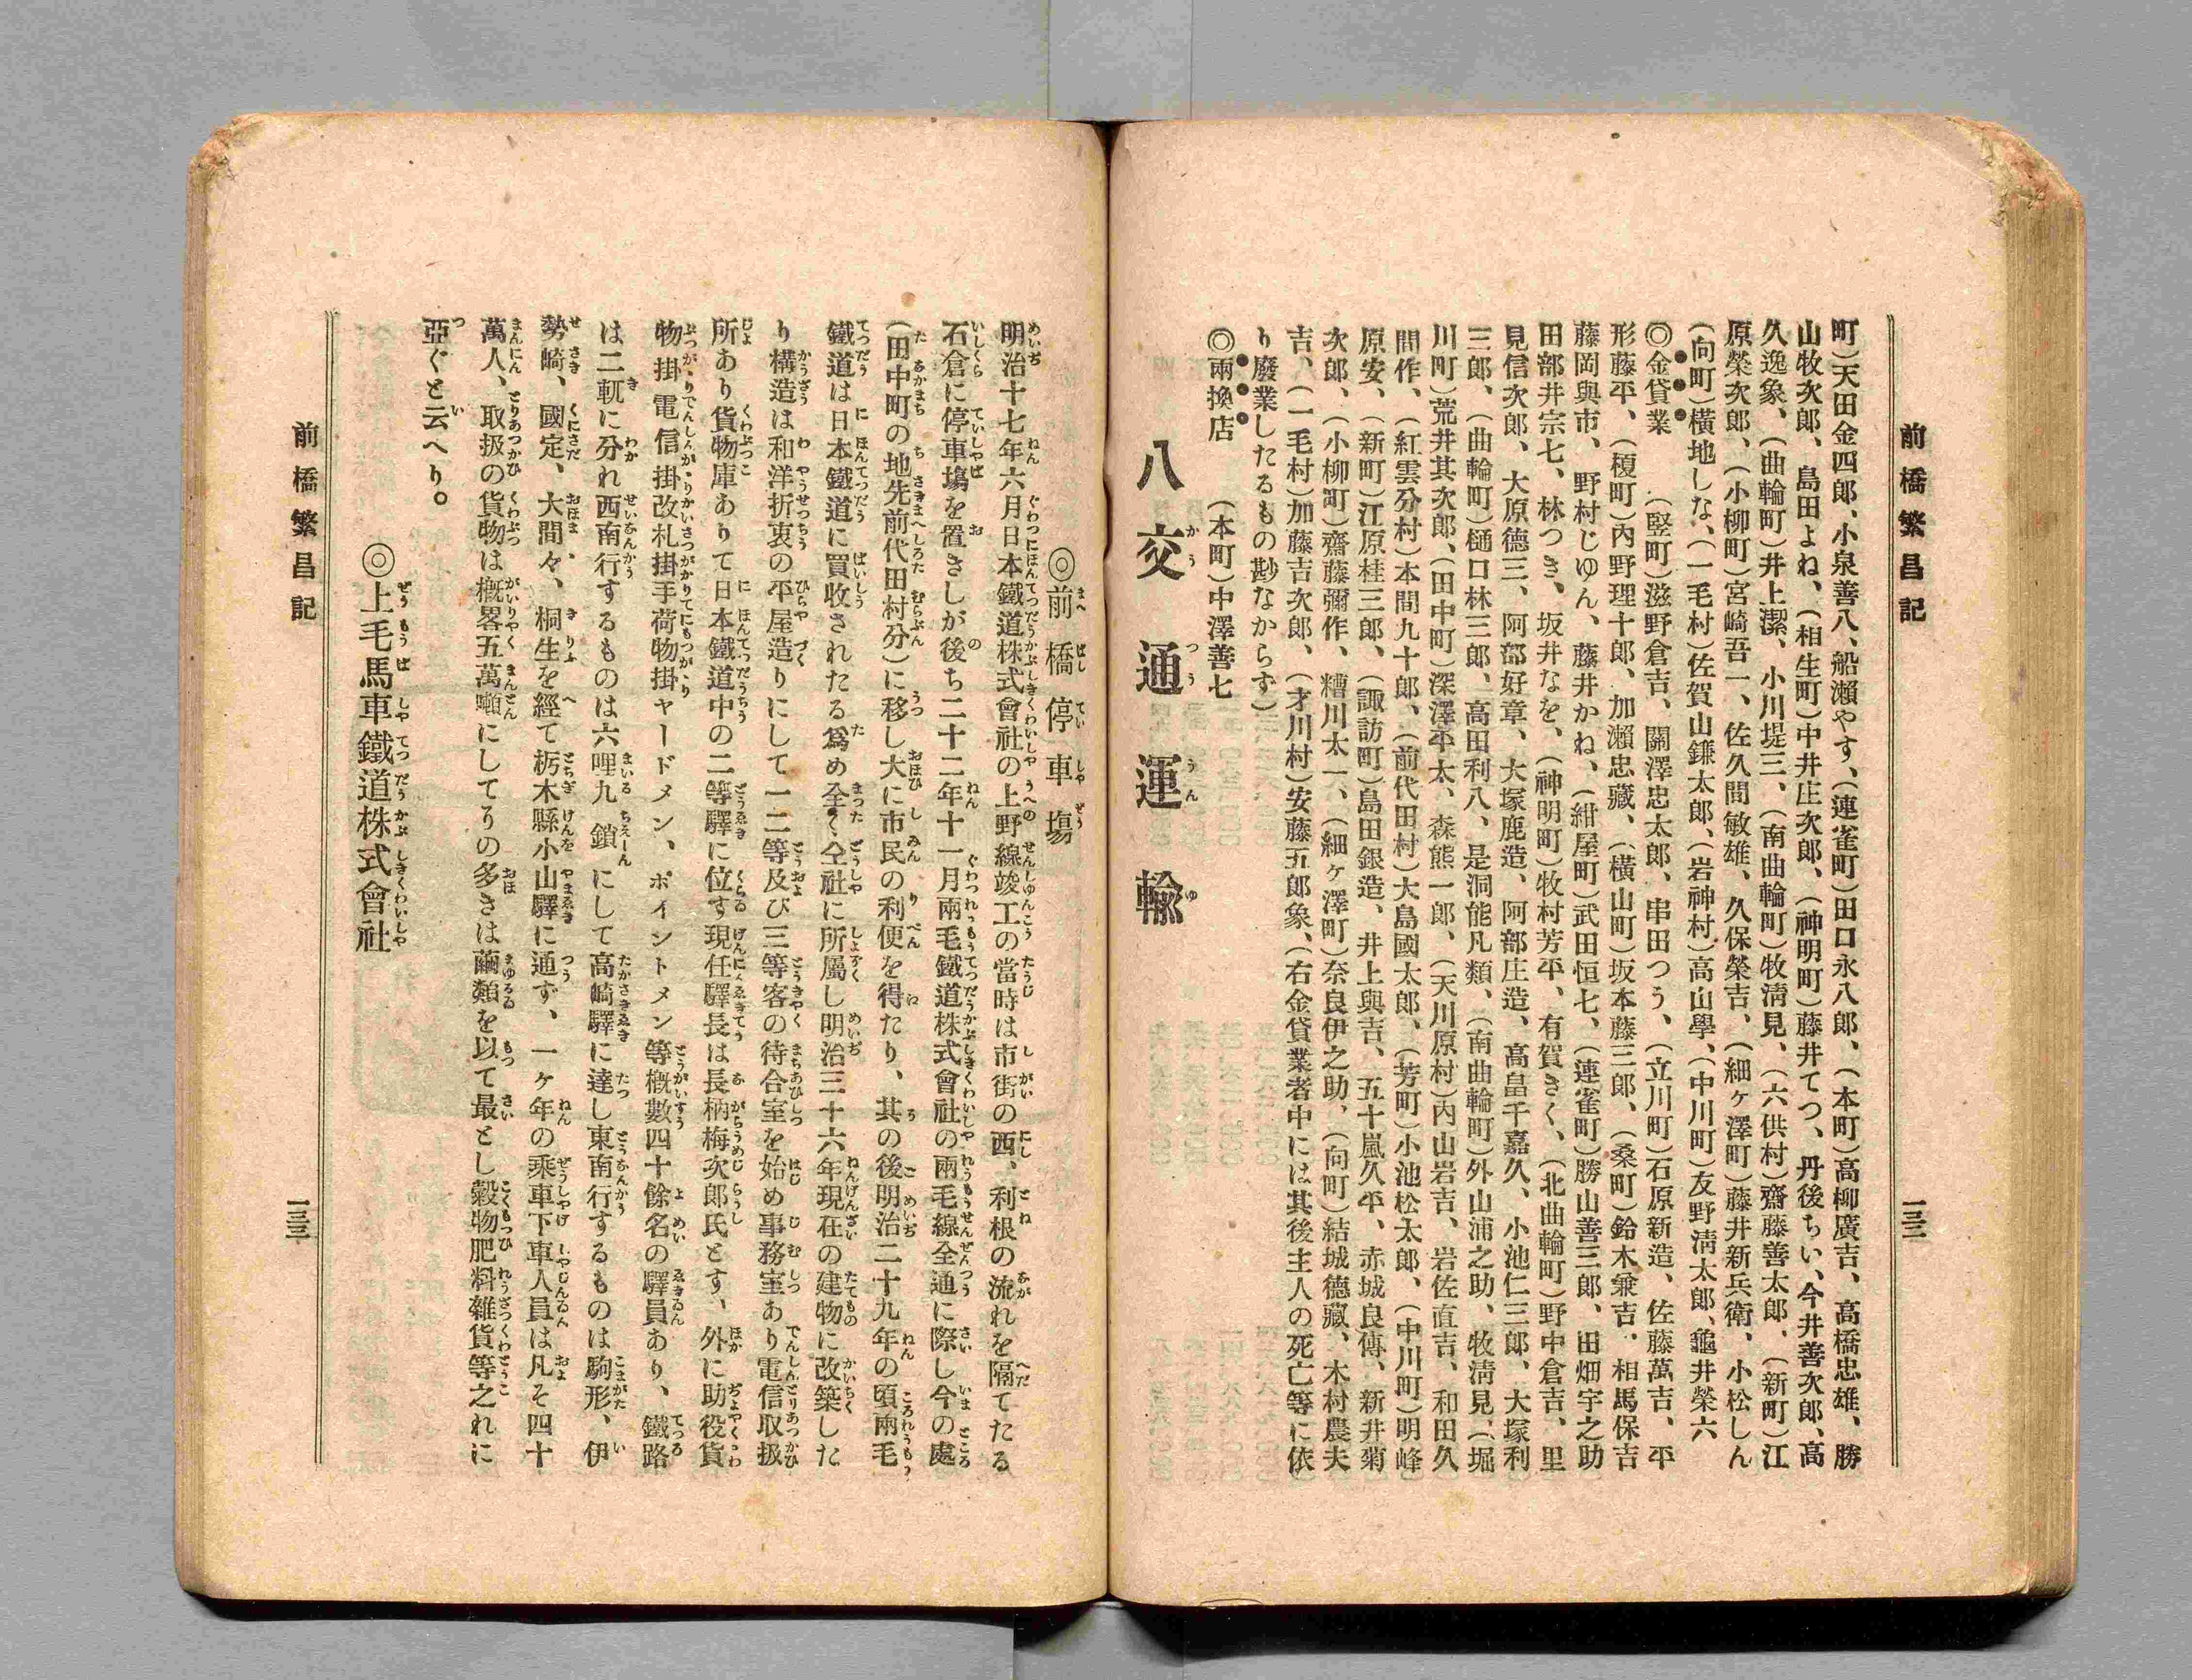 前橋繁昌記
一三二
町)天田金四郎、小泉善八、船瀬やす、(連雀町)田口永八郎、(本町)高柳廣吉、高橋忠雄、勝
山牧次郎、島田よね、(相生町)中井庄次郎、(神明町)藤井てつ、丹後ちい、今井善次郎、高
久逸象、(曲輪町)井上潔、小川堤三、(南曲輪町)牧淸見、(六供村)齋藤善太郎、(新町)江
原榮次郎、(小柳町)宮崎吾一、佐久間敏雄、久保榮吉、(細ヶ澤町)藤井新兵衛、小松しん
(向町)橫地しな、(一毛村)佐賀山鎌太郎、(岩神村)高山學、(中川町)友野淸太郎、龜井榮六
◎金貸業　(竪町)滋野倉吉、關澤忠太郎、串田つう、(立川町)石原新造、佐藤萬吉、平
形藤平、(榎町)內野理十郎、加瀬忠藏、(橫山町)坂本藤三郎、(桑町)鈴木兼吉、相馬保吉
藤岡與市、野村じゆん、藤井かね、(紺屋町)武田恒七、(連雀町)勝山善三郎、田畑宇之助
田部井宗七、林つき、坂井なを、(神明町)牧村芳平、有賀きく、(北曲輪町)野中倉吉、里
見信次郎、大原德三、阿部好章、大塚鹿造、阿部庄造、高畠千嘉久、小池仁三郎、大塚利
三郎、(曲輪町)樋口林三郎、高田利八、是洞能凡類、(南曲輪町)外山浦之助、牧淸見、(堀
川町)荒井其次郎、(田中町)深澤平太、森熊一郎、(天川原村)內山岩吉、岩佐直吉、和田久
間作、(紅雲分村)本間九十郎、(前代田村)大島國太郎、(芳町)小池松太郎、(中川町)明峰
原安、(新町)江原桂三郎、(諏訪町)島田銀造、井上與吉、五十嵐久平、赤城良傳、新井菊
次郎、(小柳町)齋藤彌作、糟川太一、(細ヶ澤町)奈良伊之助、(向町)結城德藏、木村農夫
吉、(一毛村)加藤吉次郎、(才川村)安藤五郎象、(右金貸業者中には其後主人の死亡等に依
り廢業したるもの尠なからず)
◎兩換店　(本町)中澤善七
八交通運輸
◎前橋停車場
明治十七年六月日本鐵道株式會社の上野線竣工の當時は市街の西、利根の流れを隔てたる
石倉に停車場を置きしが後ち二十二年十一月兩毛鐵道株式會社の兩毛線全通に際し今の處
(田中町の地先前代田村分)に移し大に市民の利便を得たり、其の後明治二十九年の頃兩毛
鐵道は日本鐵道に買收されたる爲め全く仝社に所屬し明治三十六年現在の建物に改築した
り構造は和洋折衷の平屋造りにして一二等及び三等客の待合室を始め事務室あり電信取扱
所あり貨物庫ありて日本鐵道中の二等驛に位す現任驛長は長柄梅次郎氏とす、外に助役貨
物掛電信掛改札掛手荷物掛ヤードメン、ポイントメン等槪數四十餘名の驛員あり、鐵路
は二軌に分れ西南行するものは六哩九鎖にして高崎驛に達し東南行するものは駒形、伊
勢崎、國定、大間々、桐生を經て栃木縣小山驛に通ず、一ヶ年の乘車下車人員は凡そ四十
萬人、取扱の貨物は槪畧五萬噸にしてうの多きは繭類を以て最とし穀物肥料雜貨等之れに
亞ぐと云へり。
◎上毛馬車鐵道株式會社
前橋繁昌記
一三三